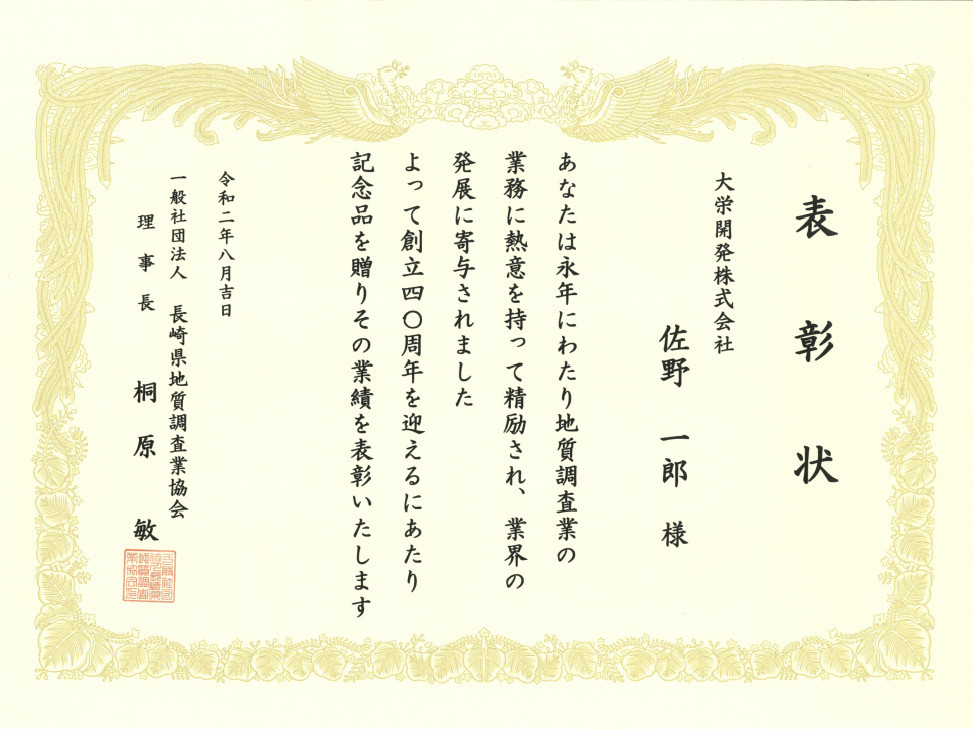 表彰状
大栄開発株式会社
佐野 一郎 様
あなたは永年にわたり地質調査業の
業務に熱意を持って精励され、業界の
発展に寄与されました
よって創立四〇周年を迎えるにあたり
記念品を贈りその業績を表彰いたします
令和二年八月吉日
一般社団法人 長崎県地質調査業協会
理事長 桐原 敏